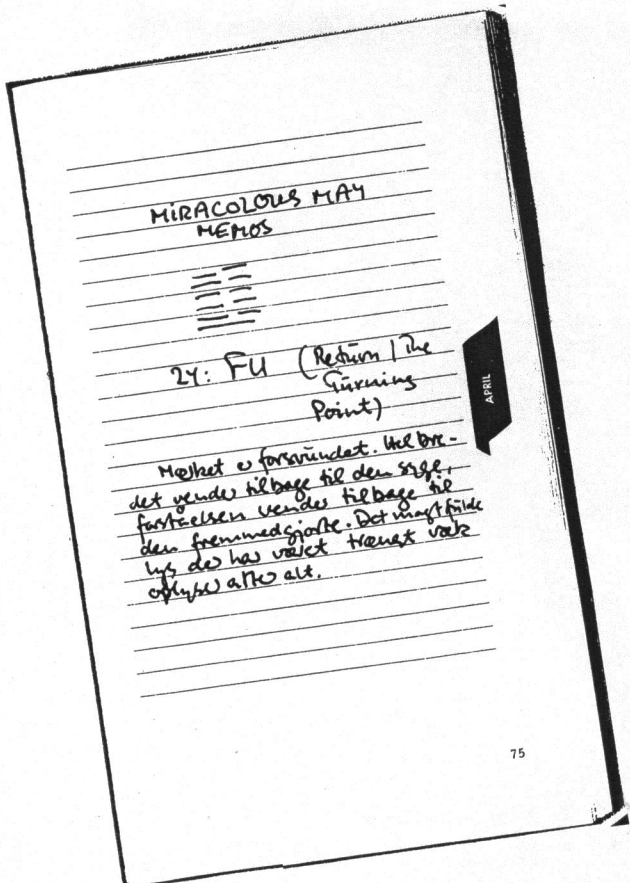 MIRACOLOUS MAY
MEMOS
24: FU (Return | The
Turning
Point)
APRIL
Mørket er forsvundet. Helbre-
det vender tilbage til den syge,
forståelsen vender tilbage til
den fremmedgjorte. Det magtfulde
lys der har været trængt væk
oplyser atter alt.
75